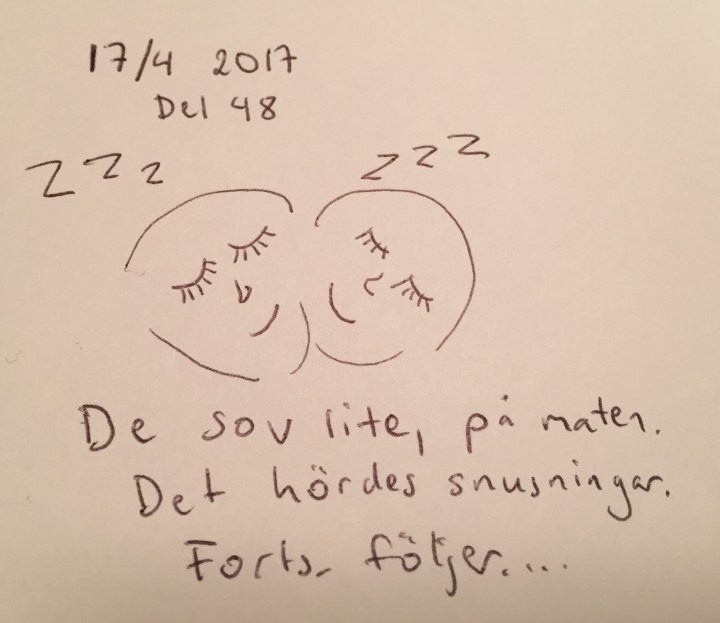 17/4 2017
Del 48
Z Z Z Z Z Z
De sov lite, på maten.
Det hördes snusningar.
Forts. följer....